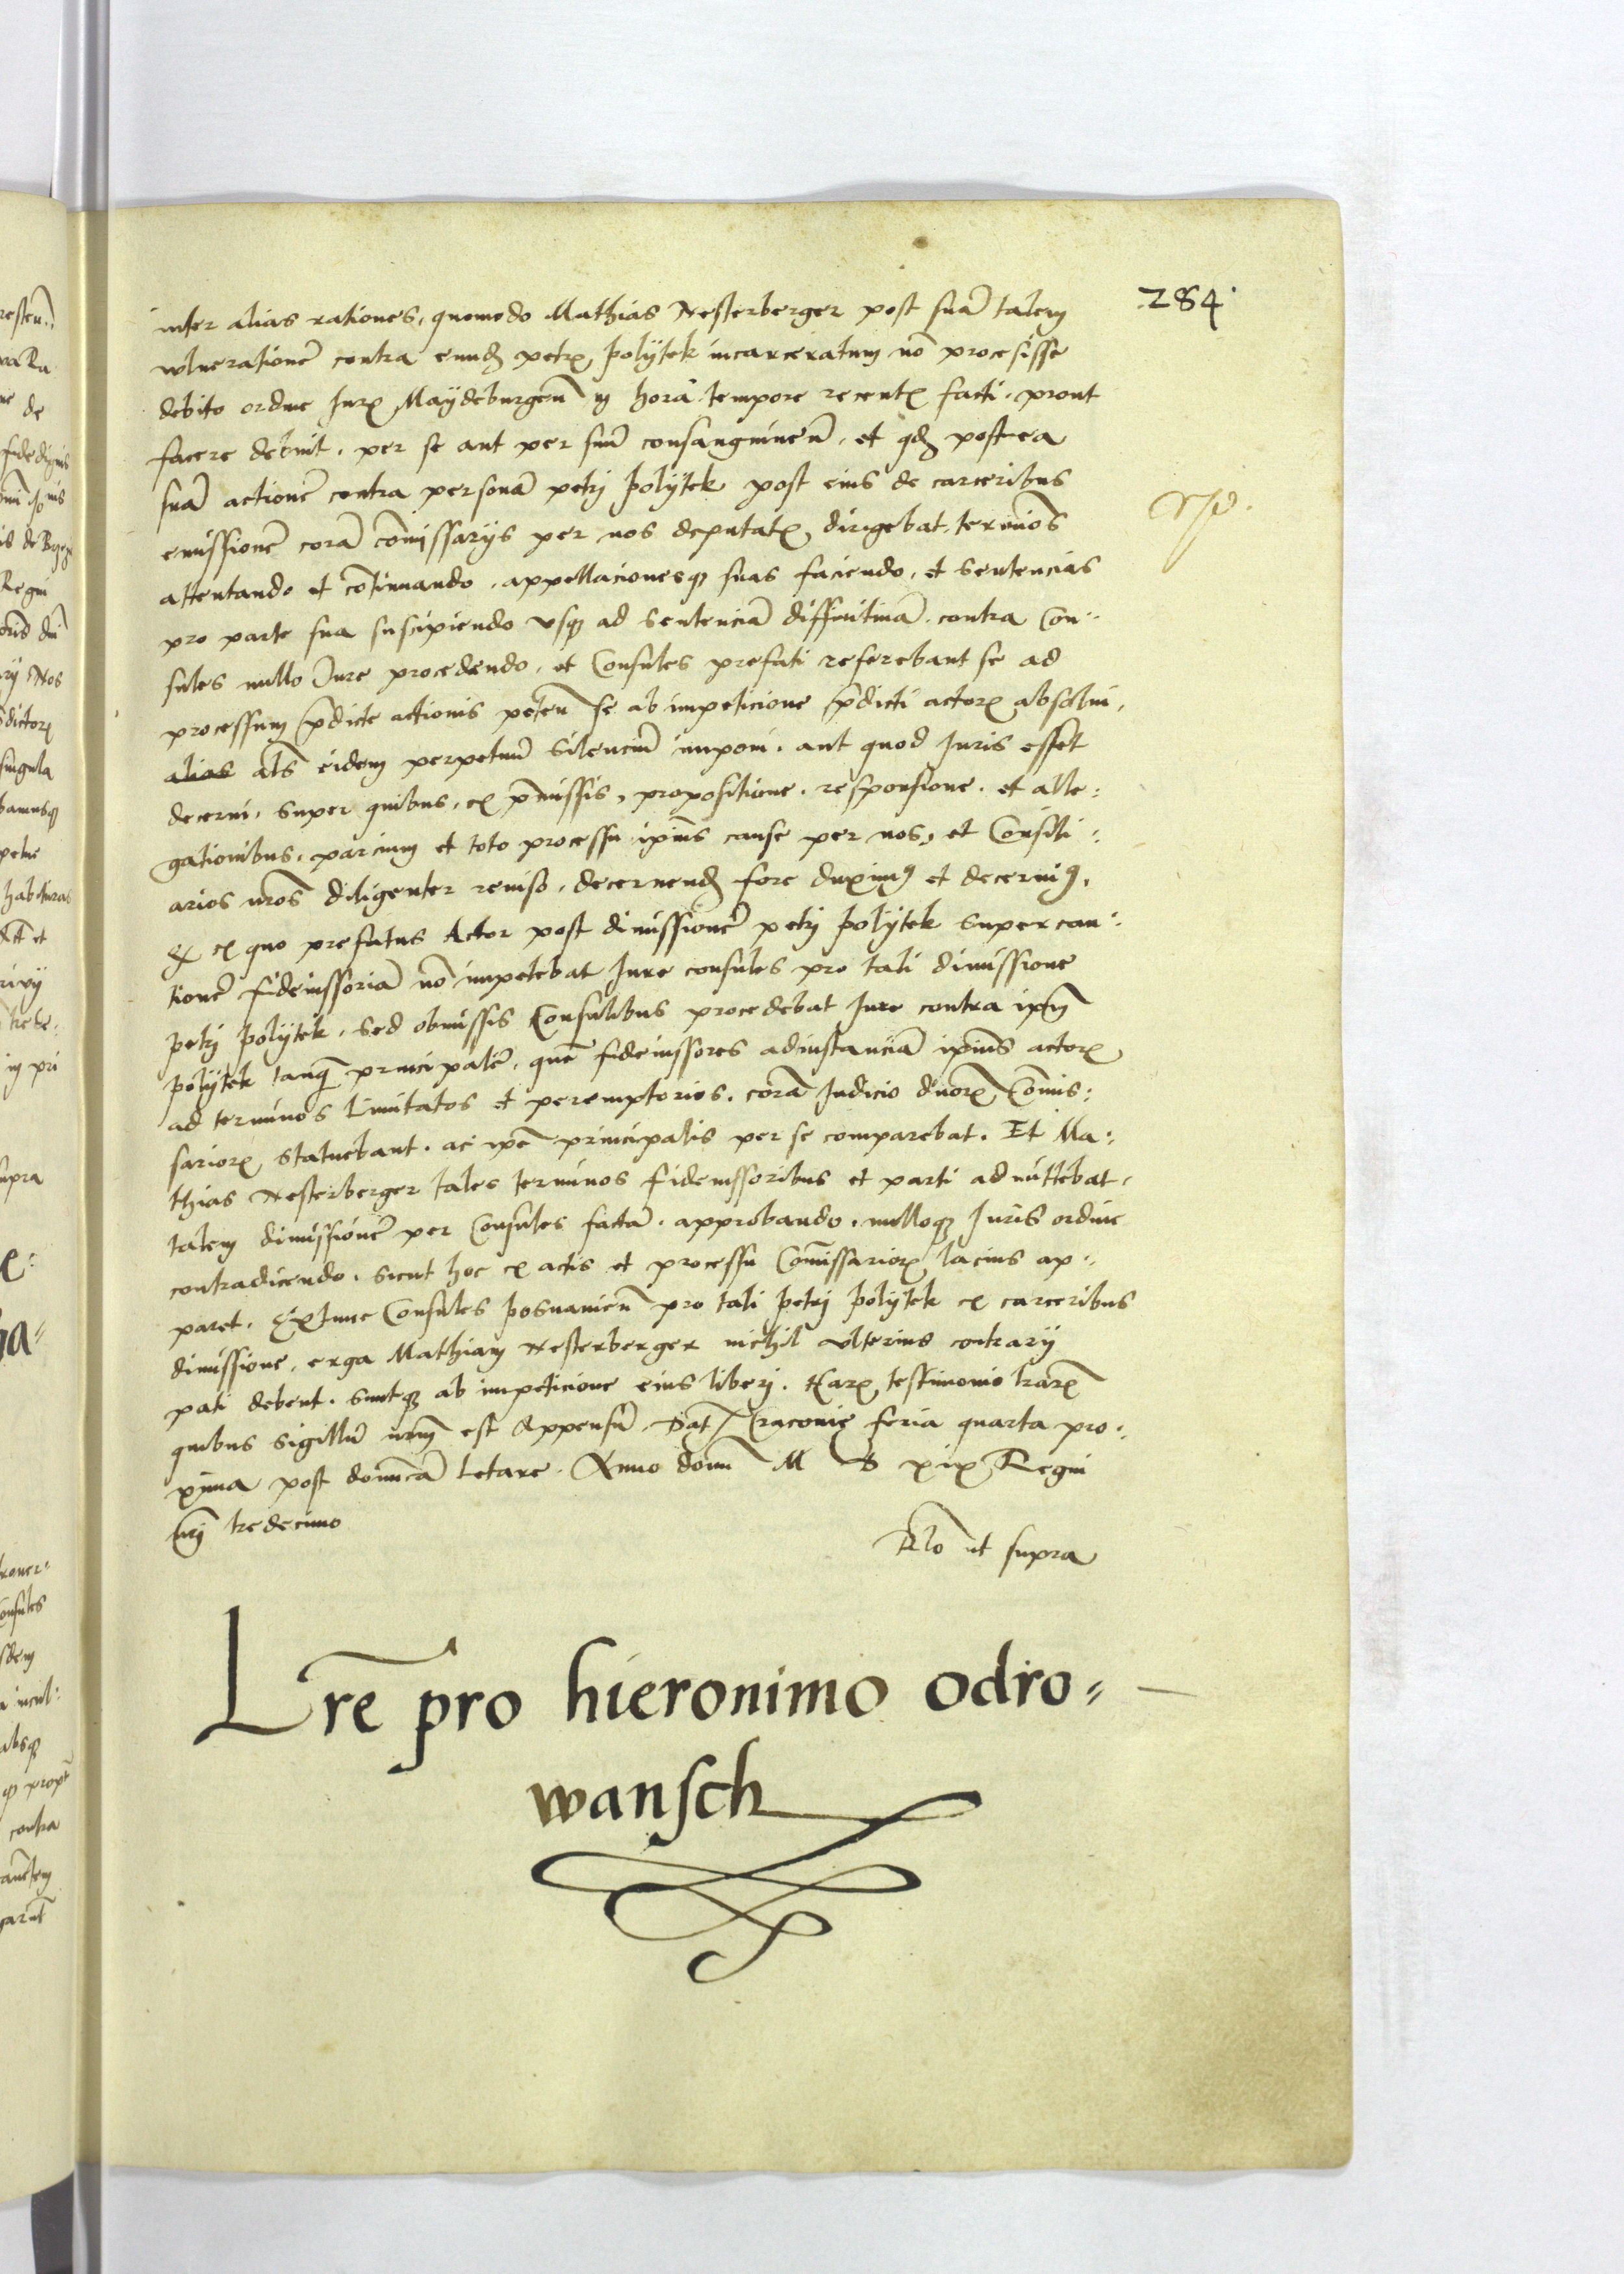 284.
inter alias rationes, quomodo Mathias Nesterberger post suā talem
vulnerationē contra eundē petrū polÿtek incarceratum nō procesisse
debito ordine Iurꝭ Maÿdeburgeñ in hora tempore recentꝭ facti. prout
facere debuit. per se aut per suū consanguineū. et qđ postea
suā actionē contra personā petrj polÿtek post eius de carceribus
emissionē corā cōmissarijs per nos deputatꝭ dirigebat. termīos
attentando et cōtinuando. appellacionesqꝫ suas faciendo. et sentencias
pro parte sua suscipiendo vsqꝫ ad sentenciā diffinitiuā. contra Con:
sules nullo Iure procedendo. et Consules prefati referebant se ad
processum p̄dicte actionis peteñ se ab impeticione p̄dicti actorꝭ absolui,
alias als̄ eidem perpetuū silenciū imponi. aut quod Iuris esset
decerni. super quibus. ex p̄missis, propositione. responsione. et alle:
gationibus. parcium et toto processu ip̄ius cause per nos, et Consili:
arios nr̄os diligenter reuiso. decernendū fore duximꝰ et decernimꝰ.
Ex quo prefatus Actor post dimissionē petrj polÿtek super cau:
tionē fideiussoriā nō impetebat Iure consules pro tali dimissione
petrj polÿtek. sed obmissis Consulibus procedebat Iure contra ip̄m
polÿtek tanqꝫ principalē. quē fideiussores ad instanciā ip̄ius actorꝭ
ad terminos limitatos et peremptorios. corā Iudicio dn̄orꝭ Cōmis:
sariorꝭ statuebant. ac ip̄e principalis per se comparebat. Et Ma:
thias Nesterberger tales terminos fideiussoribus et parti admittebat.
talem dimissionē per Consules factā. approbando. nulloqꝫ Iuris ordine
contradicendo. sicut hoc ex actis et processu Cōmissariorꝭ lacius ap:
paret. Extunc Consules posnanieñ pro tali petrj polÿtek ex carceribus
dimissione. erga Mathiam Nesterberger nichil vlterius contrarij
pati debent. suntqꝫ ab impeticione eius liberj. Harꝭ testimonio lrarꝭ
quibus sigillū nrm̄ est Appensū. Dat̄ Cracouie feria quarta pro:
xima post domīcā letare. Anno domī M D xix Regni
nrj̄ tredecimo
Rl̄o ut supra
Lr̄e pro hieronimo odro=
wansch